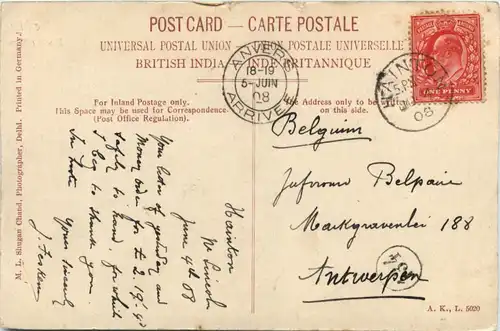 POST CARD — CARTE POSTALE
UNIVERSAL POSTAL UNION — UNION POSTALE UNIVERSELLE
BRITISH INDIA — INDE BRITANNIQUE
ANVERS
18-19
5-JUIN
08
ARRIVÉE
08
ONE PENNY
For Inland Postage only.
This Space may be used for Correspondence.
(Post Office Regulation).
Address only to be
on this side.
Hainton
Nr Lincoln
June 4th 08
Your letter of yesterday and
Money order for £ 2.19.
safely to hand, for which
I beg to thank you.
In haste
Yours sincerely
Belgium
Juffrouw Belpaire
Markgravenlei 188
Antwerpen
M. L. Shugan Chand, Photographer, Delhi. Printed in Germany.
A. K., L. 5020